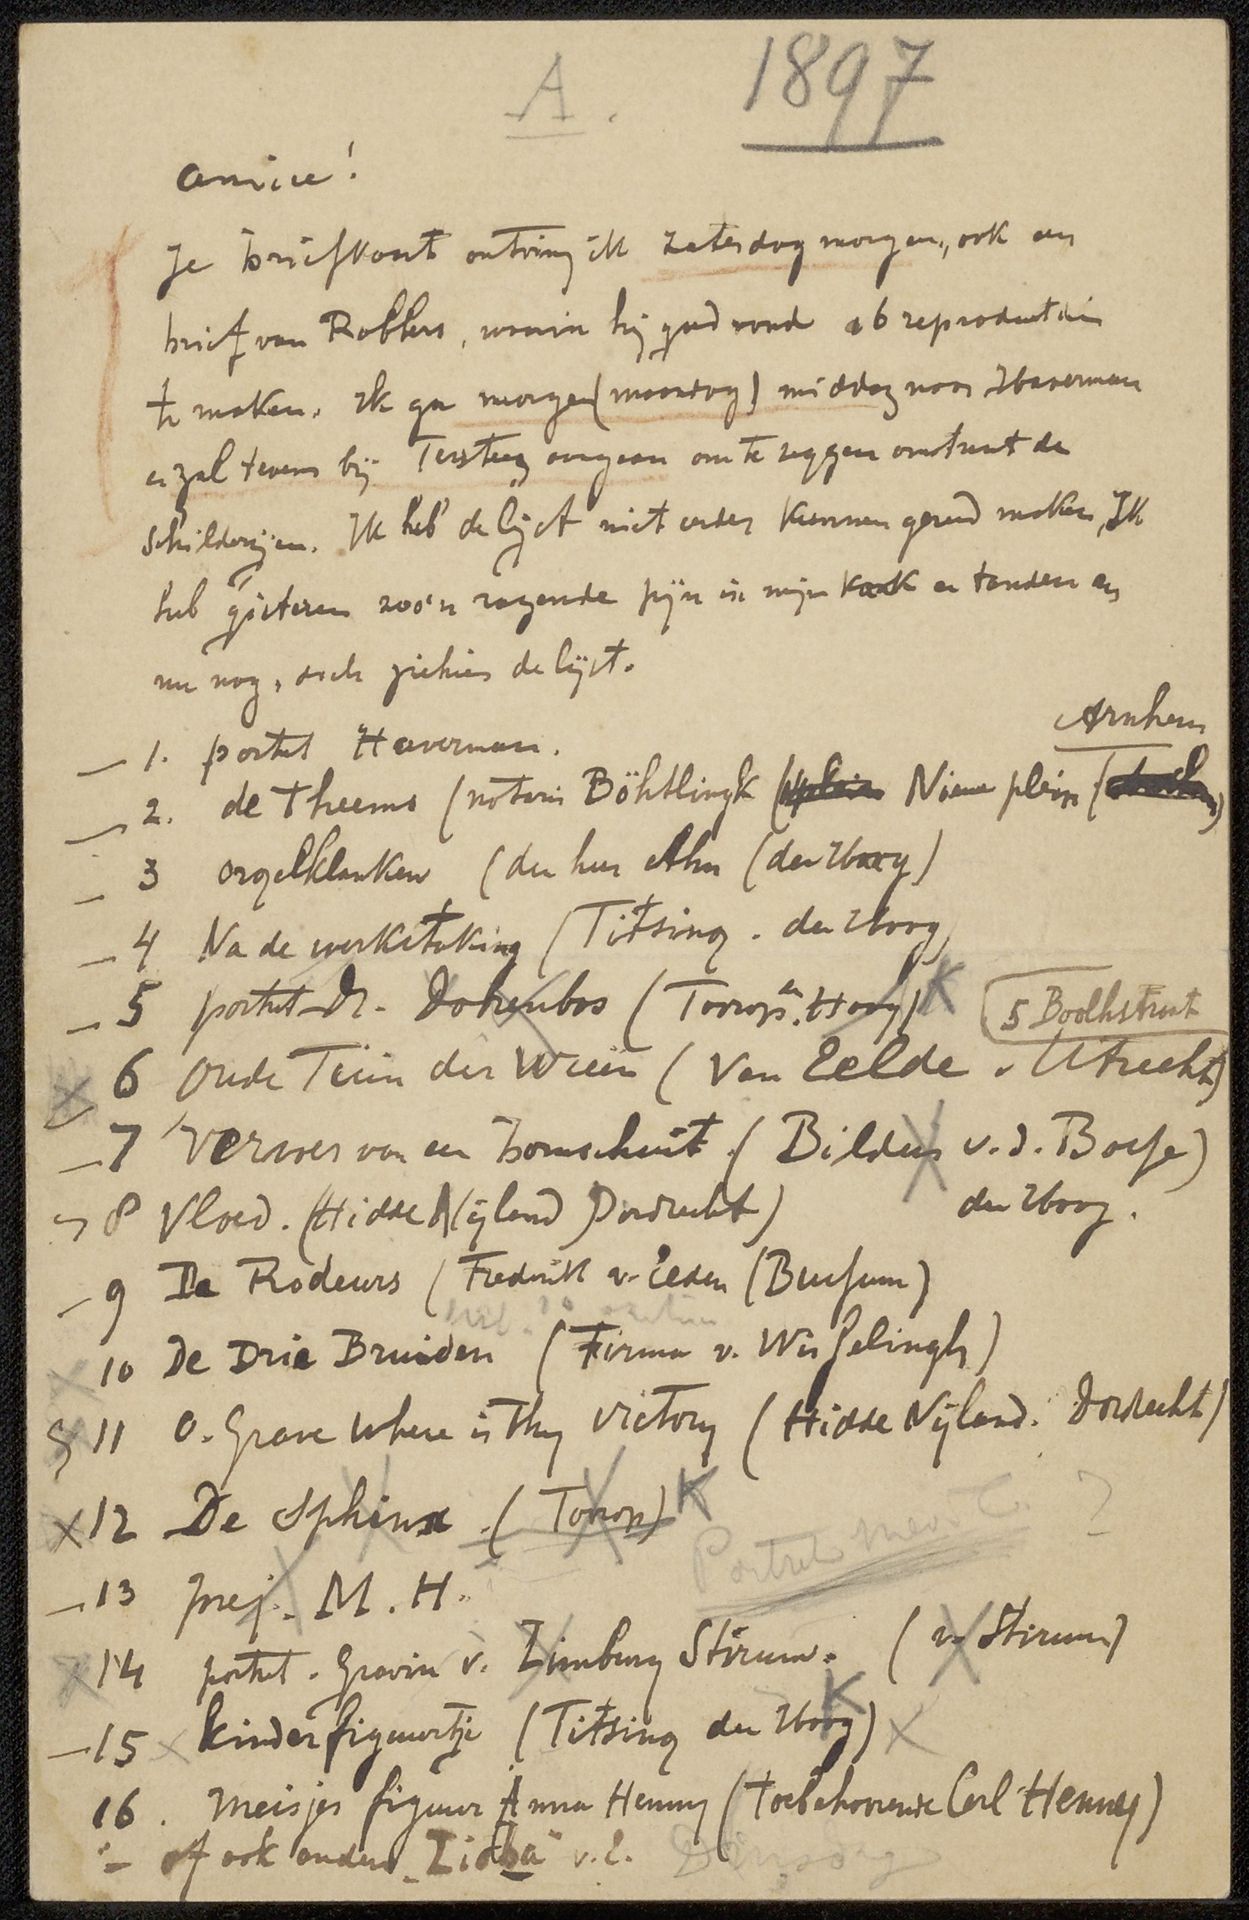 A. 1897
Amice!
Je briefkaart ontving ik Zaterdag morgen, ook een
brief van Robbers, waarin hij goed vond 16 reproductiën
te maken. Ik ga morgen (maandag) middag naar Haverman
en zal tevens bij Tersteeg aangaan om te zeggen omtrent de
schilderijen. Ik heb de lijst niet eerder kunnen gereed maken, Ik
heb gisteren zoo'n razende pijn in mijn kaak en tanden en
nu nog, doch ziehier de lijst.
Arnhem
1. portret Haverman.
2. de Theems (notaris Böhtlingk Nieuwe plein
3 Orgelklanken (den heer (den Haag)
4 Na de werkstaking (Titsing. den Haag
5 portret Dr. Dokenbos (Toorop. den Haag) K
5 Boothstraat
6 Oude Tuin der Weeën (Van Eelde. Utrecht)
7 Verver van een bomschuit. (Bilders v. d. Bosse)
den Haag.
8 Vloed. (Hidde Nijland Dordrecht)
9 De Rodeurs (Frederik v. Eeden (Bussum)
10 De Drie Bruiden (Firma v. Wisselingh)
11 O. Grave where is Thy Victory (Hidde Nijland. Dordrecht)
12 De Sphinx. (Toorop) K
Portret ?
13 prej. M. H.
14 portret. Gravin v. Limburg Stirum. (v. Stirum)
15 Kinderfiguurtje (Titsing den Haag) K
16. Meisjes figuur Anna Henny (toebehoorende Carl Henny)
of ook anders